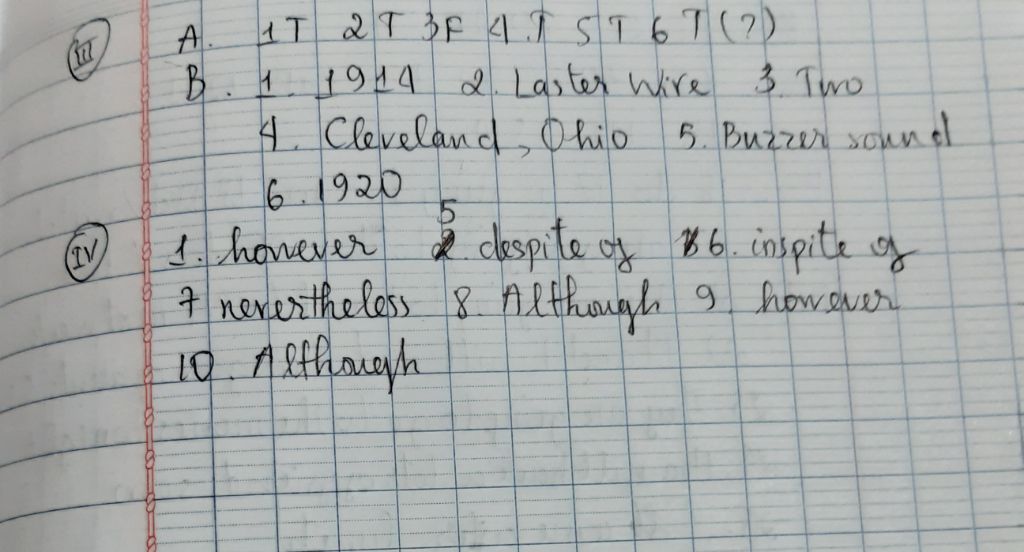 III A. 1T 2T 3F 4.T 5T 6T (?)
B. 1. 1914 2. Laster Wire 3. Two
4. Cleveland, Ohio 5. Buzzer sound
6. 1920
IV 1. however 5 despite of 6. inspite of
7 nevertheless 8. Although 9. however
10. Although